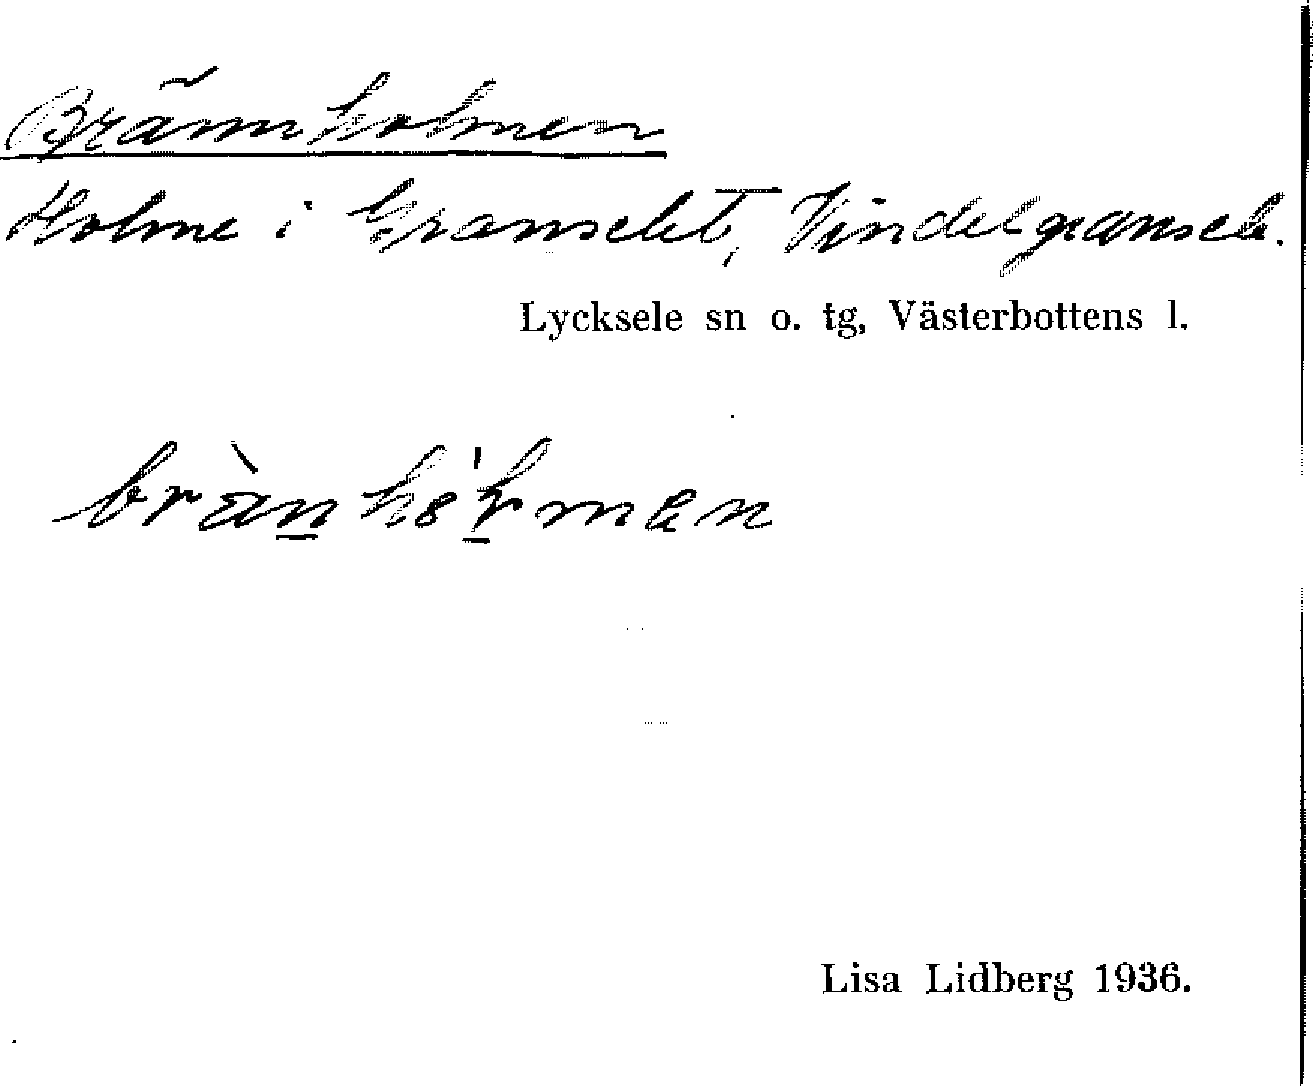 Brännholmen
Holme i Granselet, Vindelgransele.
Lycksele sn o. tg, Västerbottens l.
Lisa Lidberg 1936.